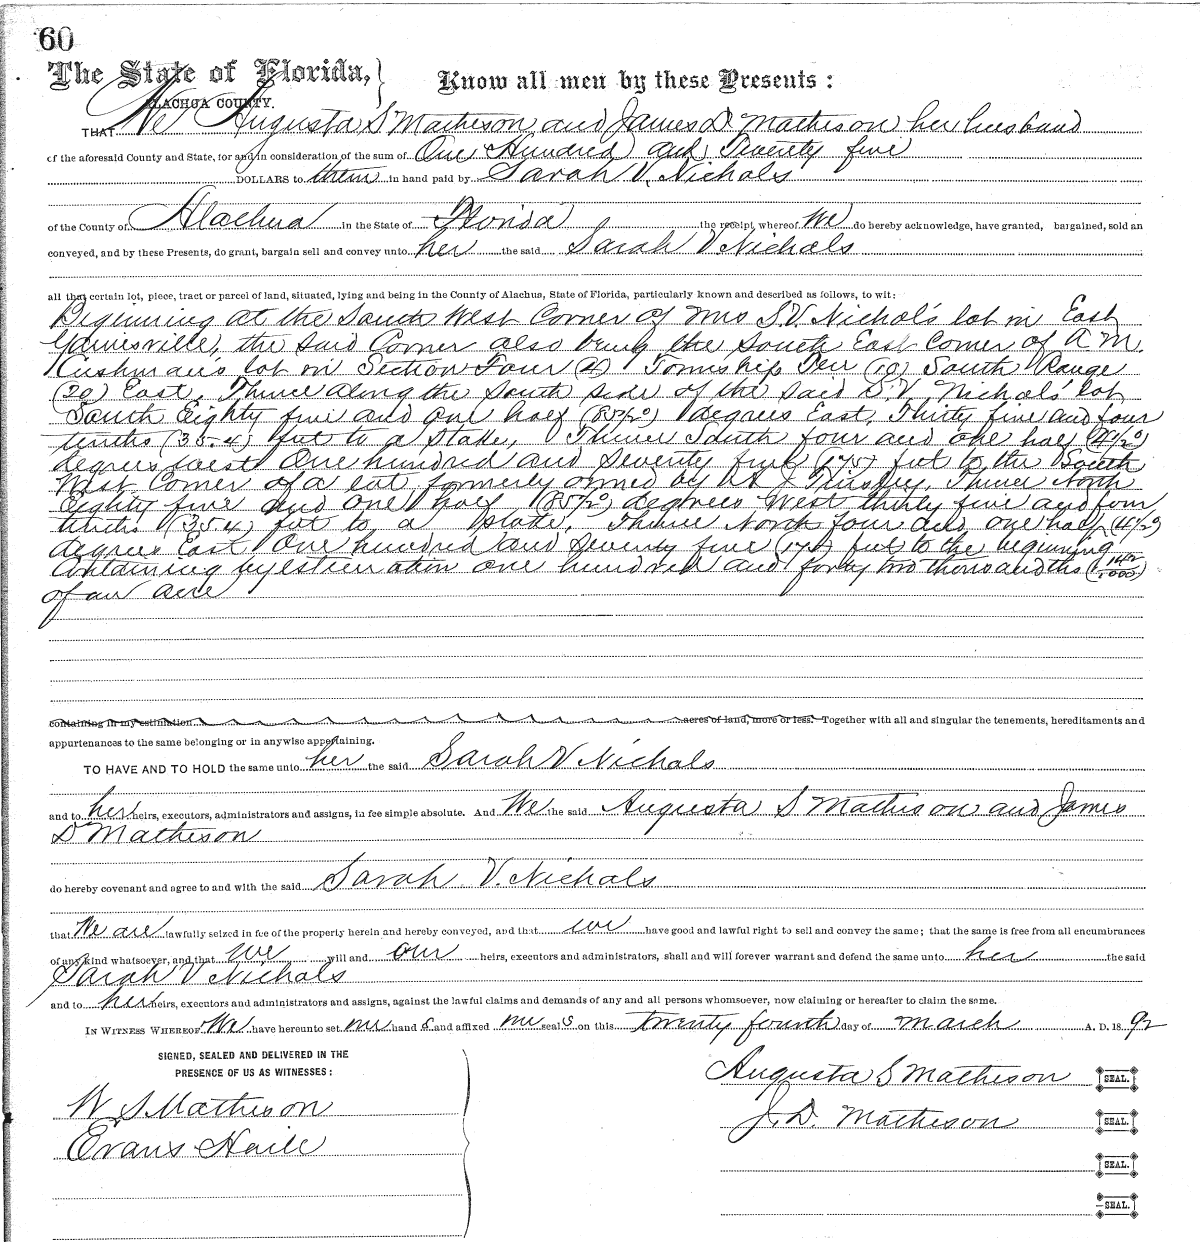 60
The State of Florida, } Know all men by these Presents :
ALACHUA COUNTY.
THAT We Augusta S Matheson and James D Matheson her husband
of the aforesaid County and State, for and in consideration of the sum of One Hundred and Seventy five
DOLLARS to them in hand paid by Sarah V. Nichols
of the County of Alachua in the State of Florida the receipt whereof We do hereby acknowledge, have granted, bargained, sold an
conveyed, and by these Presents, do grant, bargain sell and convey unto her the said Sarah V Nichols
all that certain lot, piece, tract or parcel of land, situated, lying and being in the County of Alachua, State of Florida, particularly known and described as follows, to wit:
Beginning at the South West Corner of Mrs S.V. Nichols lot in East
Gainesville, the said Corner also being the South East Corner of A. M.
Cushman's lot in Section Four (4) Township Ten (10) South Range
(20) East. Thence along the South side of the said S.V. Nichols' lot
South Eighty five and one half (85½°) degrees East. Thirty five and four
tenths (35.4) feet to a Stake, Thence South four and one half (4½°)
degrees West One hundred and Seventy five (175) feet to the South
West Corner of a lot formerly owned by Thence North
Eighty five and one half (85½°) degrees West thirty five and four
tenths (35.4) feet to a Stake. Thence North four and one half (4½°)
degrees East One hundred and Seventy five (175) feet to the beginning
Containing by estimation one hundred and forty two thousandths (142/1000)
of an acre
containing in my estimation acres of land, more or less. Together with all and singular the tenements, hereditaments and
appurtenances to the same belonging or in anywise appertaining.
TO HAVE AND TO HOLD the same unto her the said Sarah V Nichols
and to her heirs, executors, administrators and assigns, in fee simple absolute. And We the said Augusta S Matheson and James
D Matheson
do hereby covenant and agree to and with the said Sarah V. Nichols
that We are lawfully seized in fee of the property herein and hereby conveyed, and that we have good and lawful right to sell and convey the same; that the same is free from all encumbrances
of any kind whatsoever, and that we will and our heirs, executors and administrators, shall and will forever warrant and defend the same unto her the said
Sarah V Nichols
and to her heirs, executors and administrators and assigns, against the lawful claims and demands of any and all persons whomsoever, now claiming or hereafter to claim the same.
IN WITNESS WHEREOF We have hereunto set our hand s and affixed our seal s on this twenty fourth day of March A. D. 18 92
SIGNED, SEALED AND DELIVERED IN THE
PRESENCE OF US AS WITNESSES:
Augusta S Matheson SEAL.
W S Matheson
J. D. Matheson SEAL.
Evans Haile
SEAL.
SEAL.